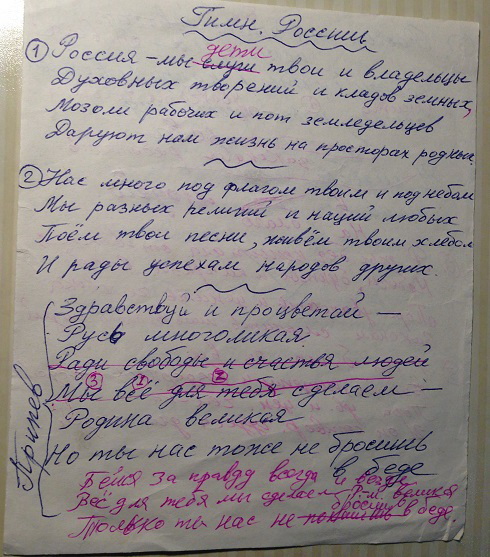 Гимн России
① Россия – мы слуги дети твои и владельцы
Духовных творений и кладов земных,
Мозоли рабочих и пот земледельцев
Даруют нам жизнь на просторах родных.
② Нас много под флагом твоим и под небом
Мы разных религий и наций любых
Поём твои песни, живём твоим хлебом
И рады успехам народов других.
Припев
Здравствуй и процветай –
Русь многоликая
Ради свободы и счастья людей
③ ① ②
Мы всё для тебя сделаем –
Родина великая
Но ты нас тоже не бросишь
в беде
за правду всегда и везде
Всё для тебя мы сделаем – великая
бросишь
Только ты нас не в беде.